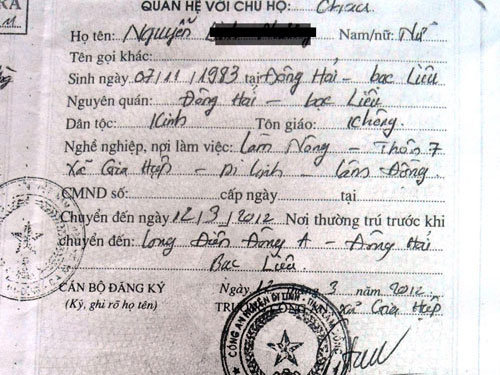 QUAN HỆ VỚI CHỦ HỘ: Cháu
Họ tên: Nguyễn Nam/nữ: Nữ
Tên gọi khác:
Sinh ngày 07/11/1983 tại Đông Hải - bạc Liêu
Nguyên quán: Đông Hải - bạc Liêu
Dân tộc: Kinh Tôn giáo: Không
Nghề nghiệp, nơi làm việc: Làm Nông - Thôn 7
xã Gia Hiệp - Di Linh - Lâm Đồng
CMND số: cấp ngày tại
Chuyển đến ngày 12/3/2012 Nơi thường trú trước khi
chuyển đến: Long Điền Đông A - Đông Hải
Bạc Liêu
CÁN BỘ ĐĂNG KÝ Ngày 12 năm 3 năm 2012
(Ký, ghi rõ họ tên) xã Gia Hiệp
CÔNG AN HUYỆN DI LINH